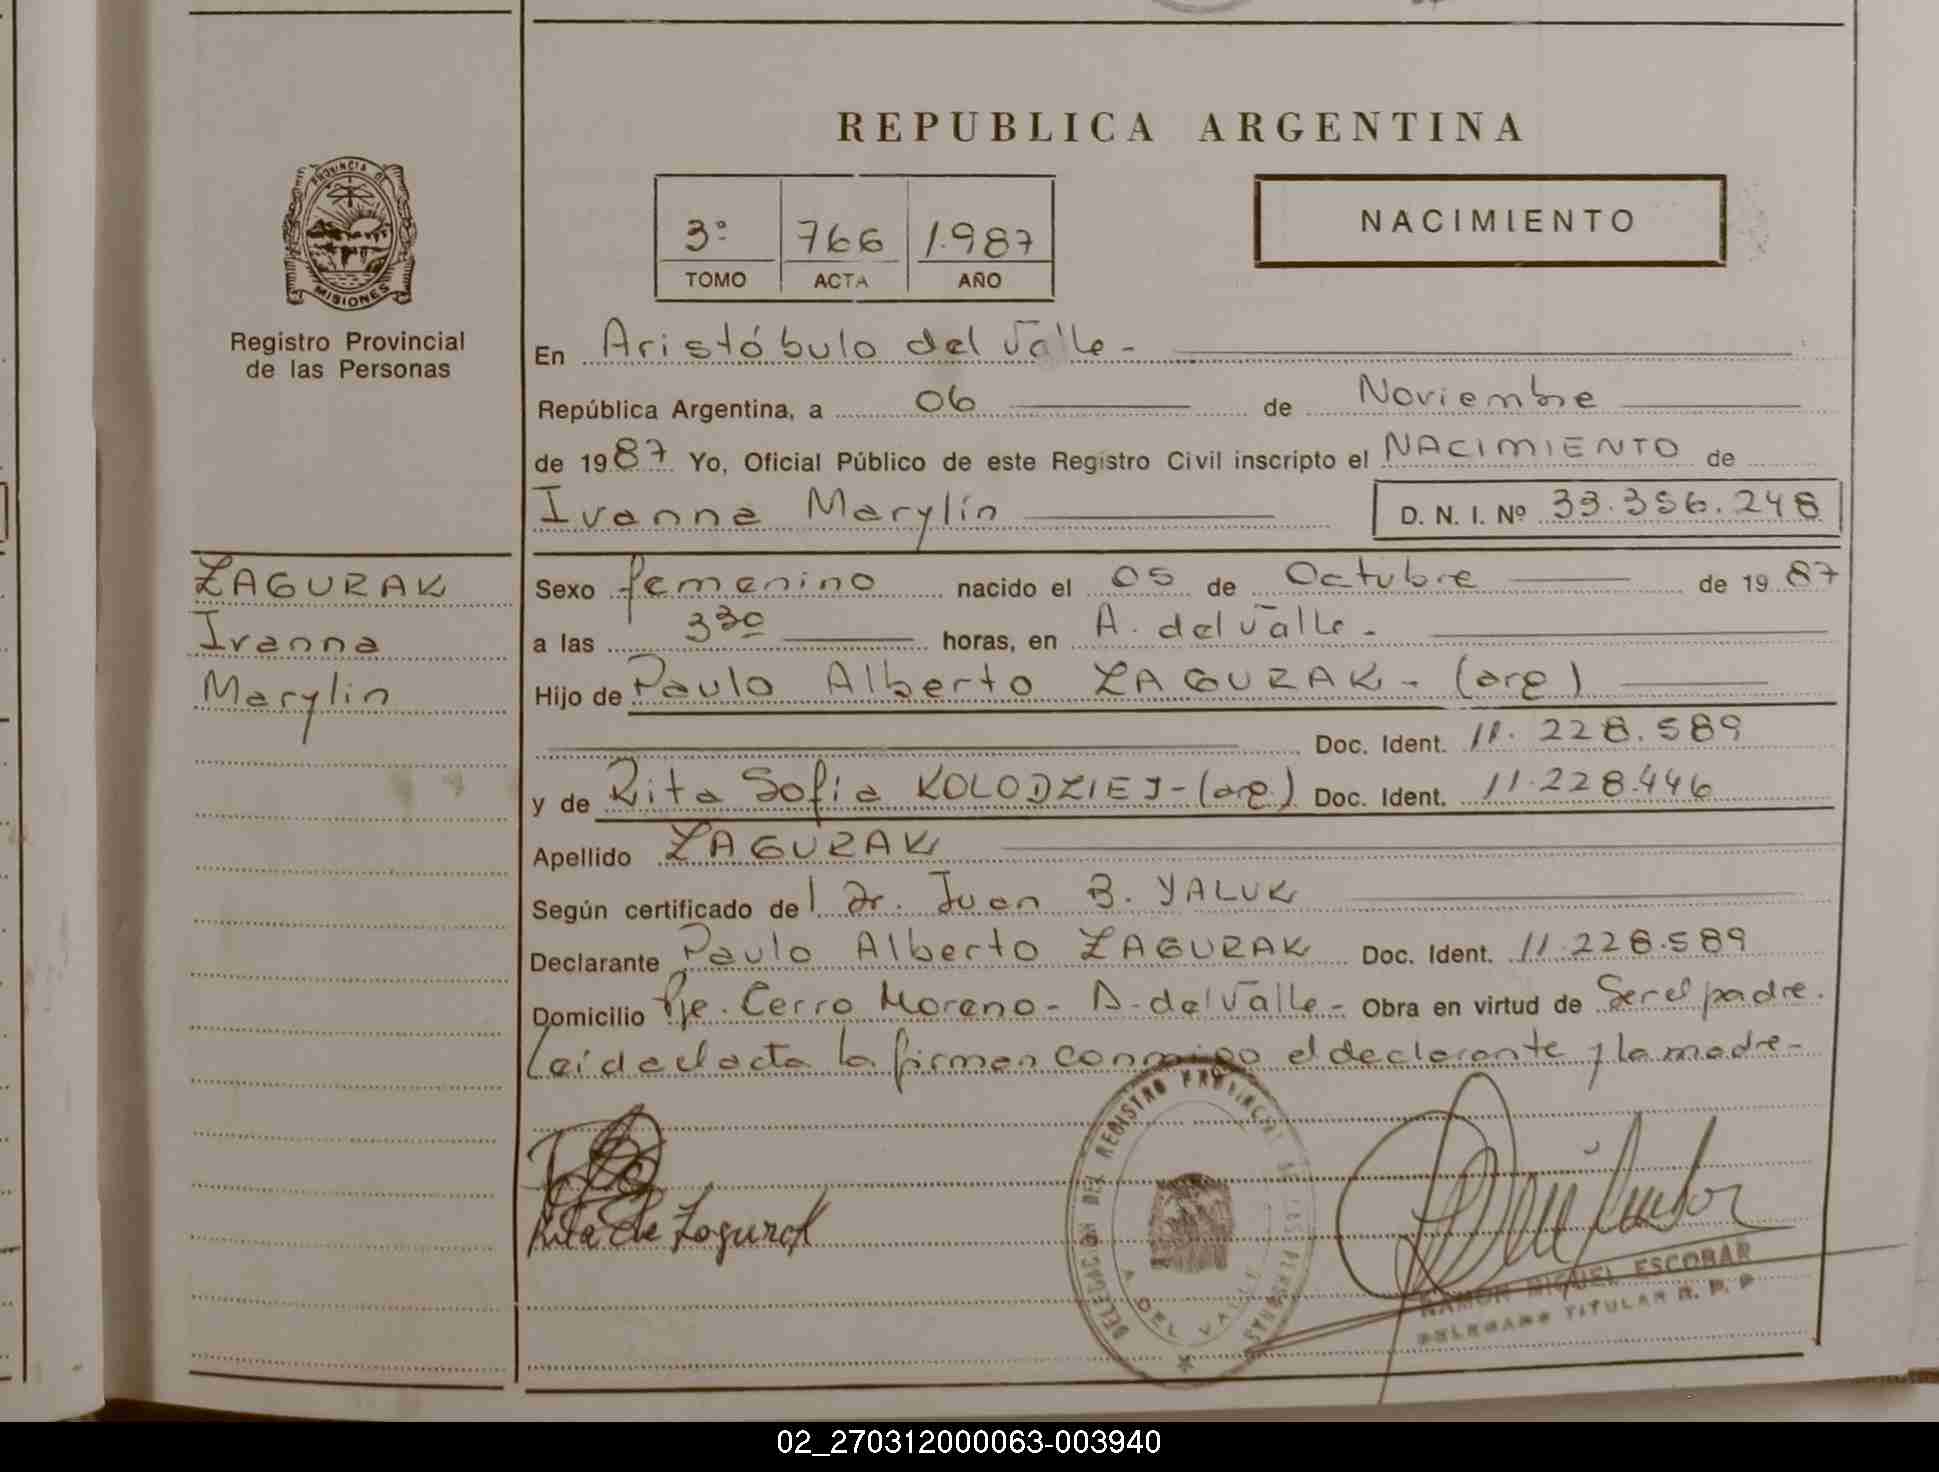 REPUBLICA ARGENTINA
PROVINCIA DE
MISIONES
Registro Provincial
de las Personas
3º 766 1.987
TOMO ACTA AÑO
NACIMIENTO
En Aristóbulo del Valle-
República Argentina, a 06 de Noviembre
de 1987 Yo, Oficial Público de este Registro Civil inscripto el NACIMIENTO de
Ivanna Marylín D. N. I. Nº 33.356.248
ZAGURAK
Ivanna
Marylin
Sexo femenino nacido el 05 de Octubre de 1987
a las 330 horas, en A. del Valle-
Hijo de Paulo Alberto ZAGURAK- (arg)
Doc. Ident. 11.228.589
y de Rita Sofía KOLODZIEJ-(arg) Doc. Ident. 11.228.446
Apellido ZAGURAK
Según certificado del Dr. Juan B. YALUK
Declarante Paulo Alberto ZAGURAK Doc. Ident. 11.228.589
Domicilio Pje. Cerro Moreno- A. del Valle- Obra en virtud de Ser el padre.
Leída el acta la firman conmigo el declarante y la madre-
Rita de Zagurak
DELEGACION DEL REGISTRO PROVINCIAL DE LAS PERSONAS
A. DEL VALLE
RAMON MIGUEL ESCOBAR
DELEGADO TITULAR R. P. P
02_270312000063-003940